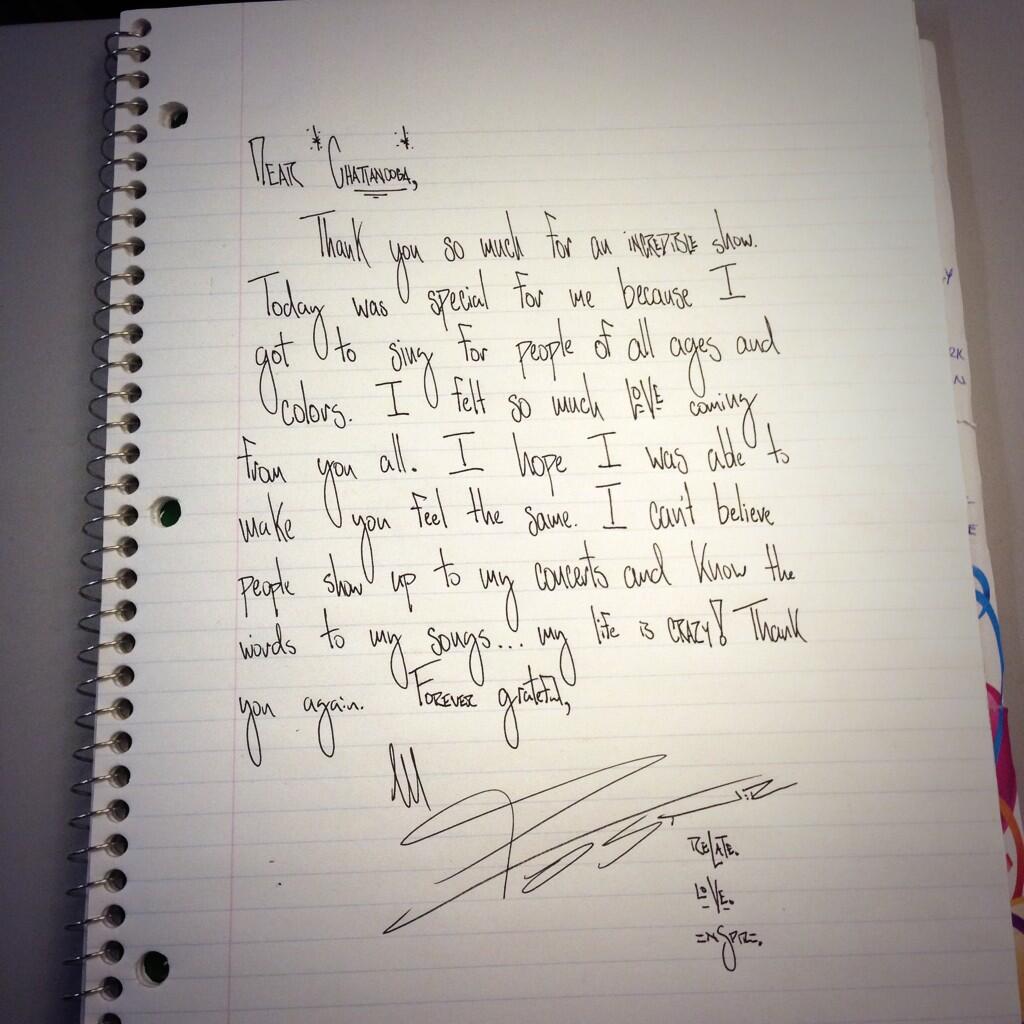 Dear *Chattanooga*,
Thank you so much for an INCREDIBLE show.
Today was special for me because I
got to sing for people of all ages and
colors. I felt so much LOVE coming
from you all. I hope I was able to
make you feel the same. I can't believe
people show up to my concerts and know the
words to my songs... my life is CRAZY! Thank
you again. Forever grateful,
RELATE.
LOVE.
ENSPIRE.